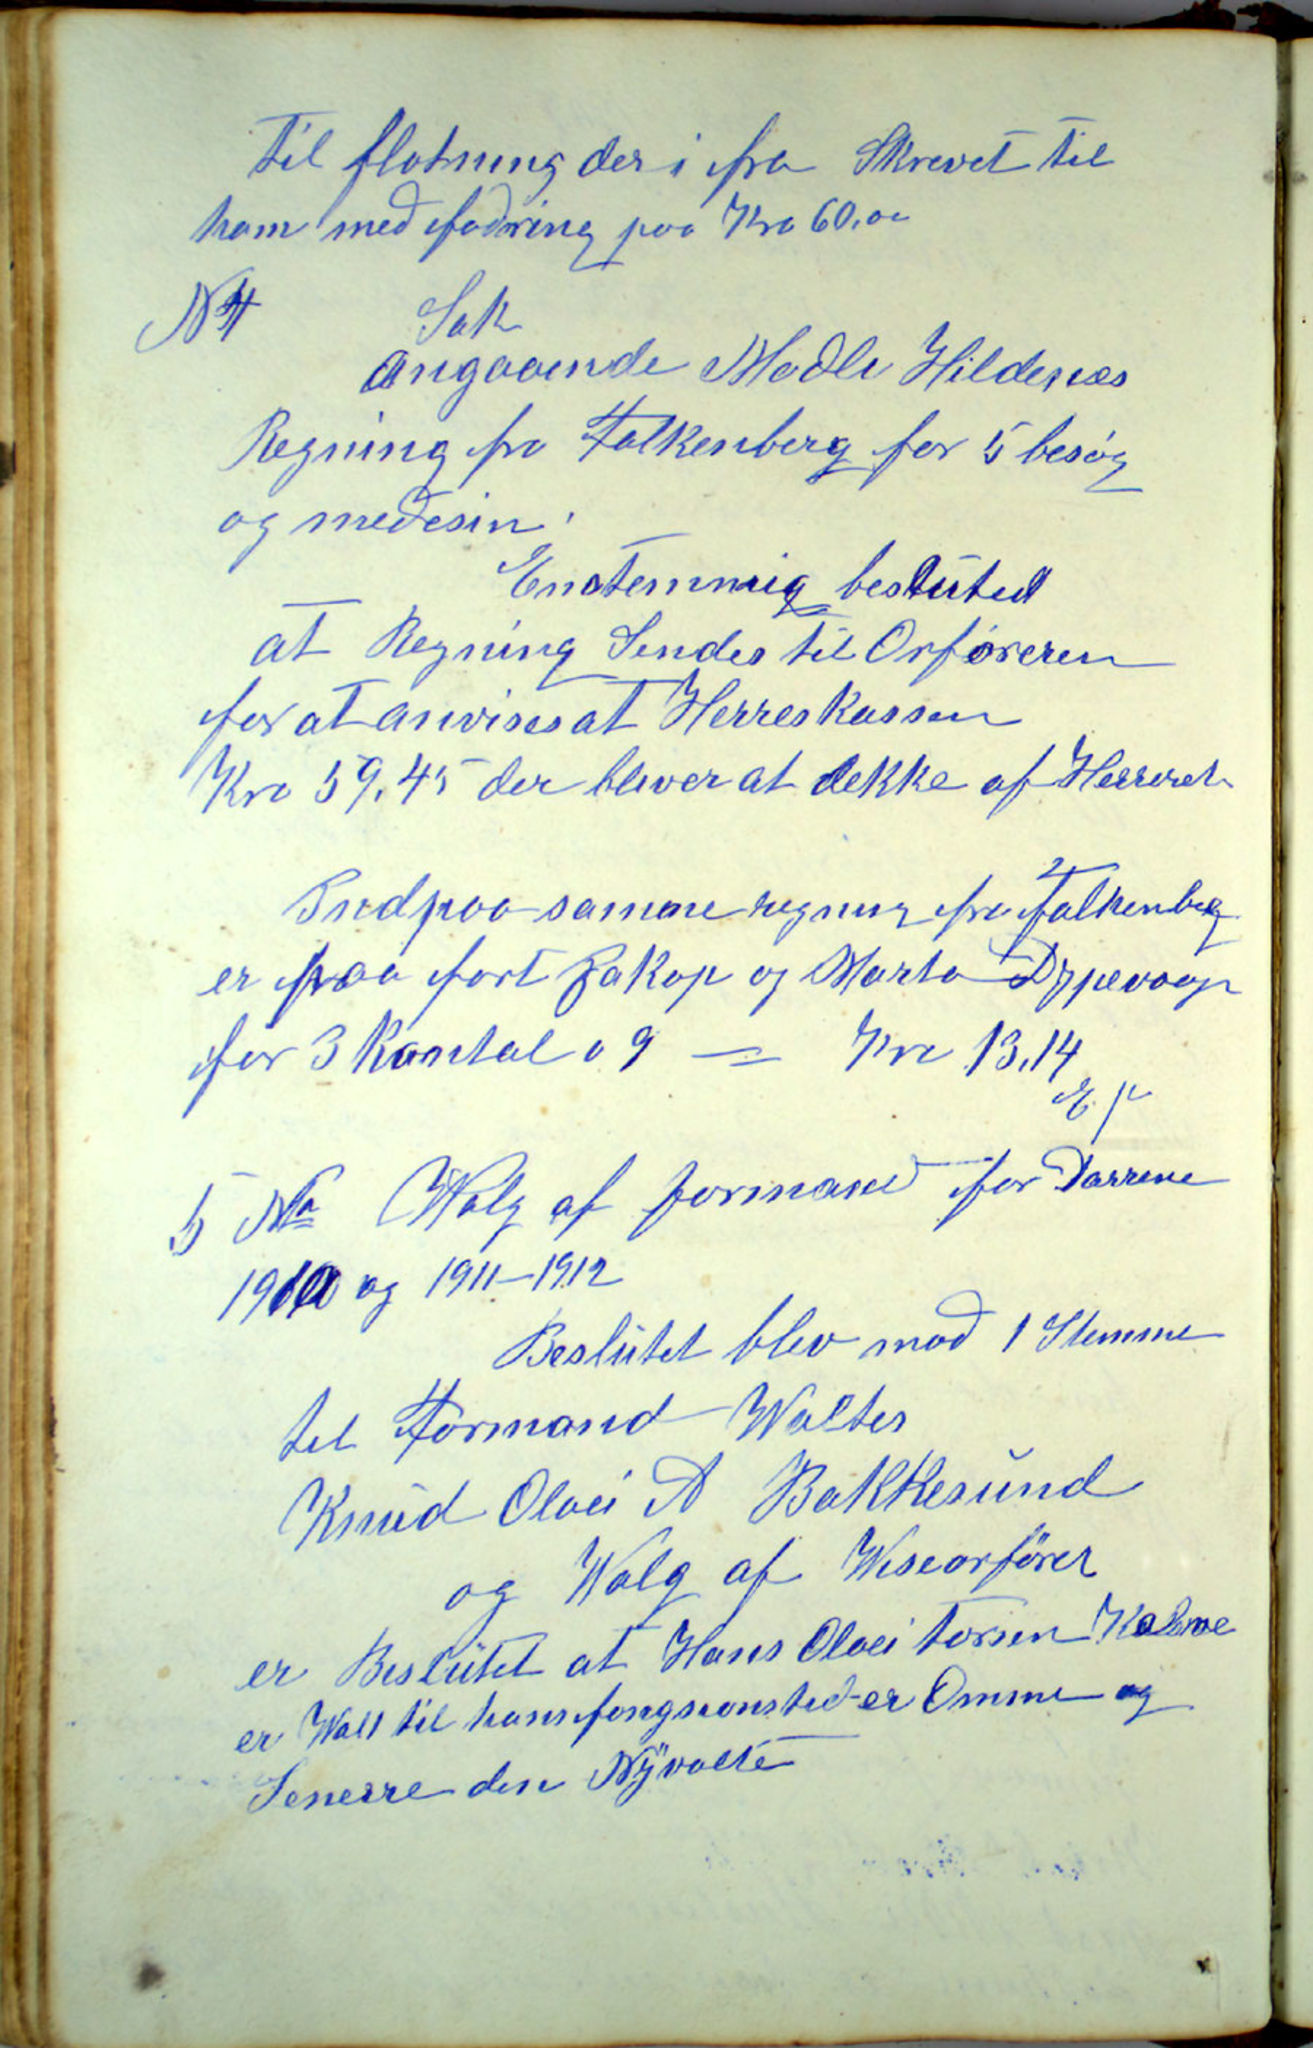 Til flotning der i fra Skrevet til
ham med fodring paa Kro 60.00
N4 Sak
angaaende Madli Hildenæs
Regning fra Falkenberg for 5 besøg
og medesin.
Enstemmig beslüted
at Regning Sendes til Orføreren
for at anvises at Herreskassen
Kro 59,45 der bliver at dekke af Herreret
Indpaa samme regning fra Falkenberg
er paa ført Jakop og Marta Dypevaag
for 3 Kantal a 9 = Kro 13.14
5 No Walg af formand for Darrene
1910 og 1911–1912
Beslütet blev mod 1 Stemme
til Formand Waltes
Knüd Olai A Bakkesünd
og Walg af Viseorfører
er Beslütet at Hans Olai Torsen Kalvne
er Walt til hans fongsionstid er Omme og
Senerre den Nÿvalte